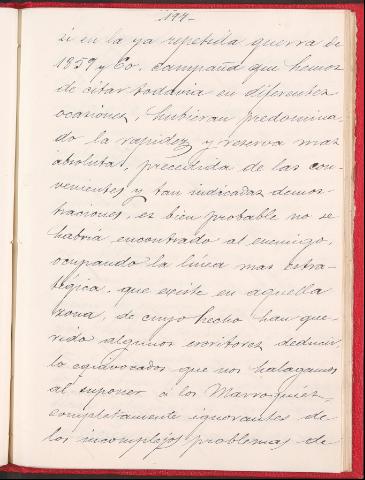 -194-
si en la ya repetida guerra de
1859 y 60, campaña que hemos
de citar todavia en diferentes
ocasiones, hubieran predomina-
do la rapidez y reserva mas
absoluta, precedida de las con-
venientes y tan indicadas demos-
traciones, es bien probable no se
habria encontrado al enemigo,
ocupando la linea mas estra-
tégica, que existe en aquella
zona, de cuyo hecho han que-
rido algunos escritores deducir,
lo equivocados que nos halagamos
al suponer á los Marroquies,
completamente ignorantes de
los incomplejos problemas de